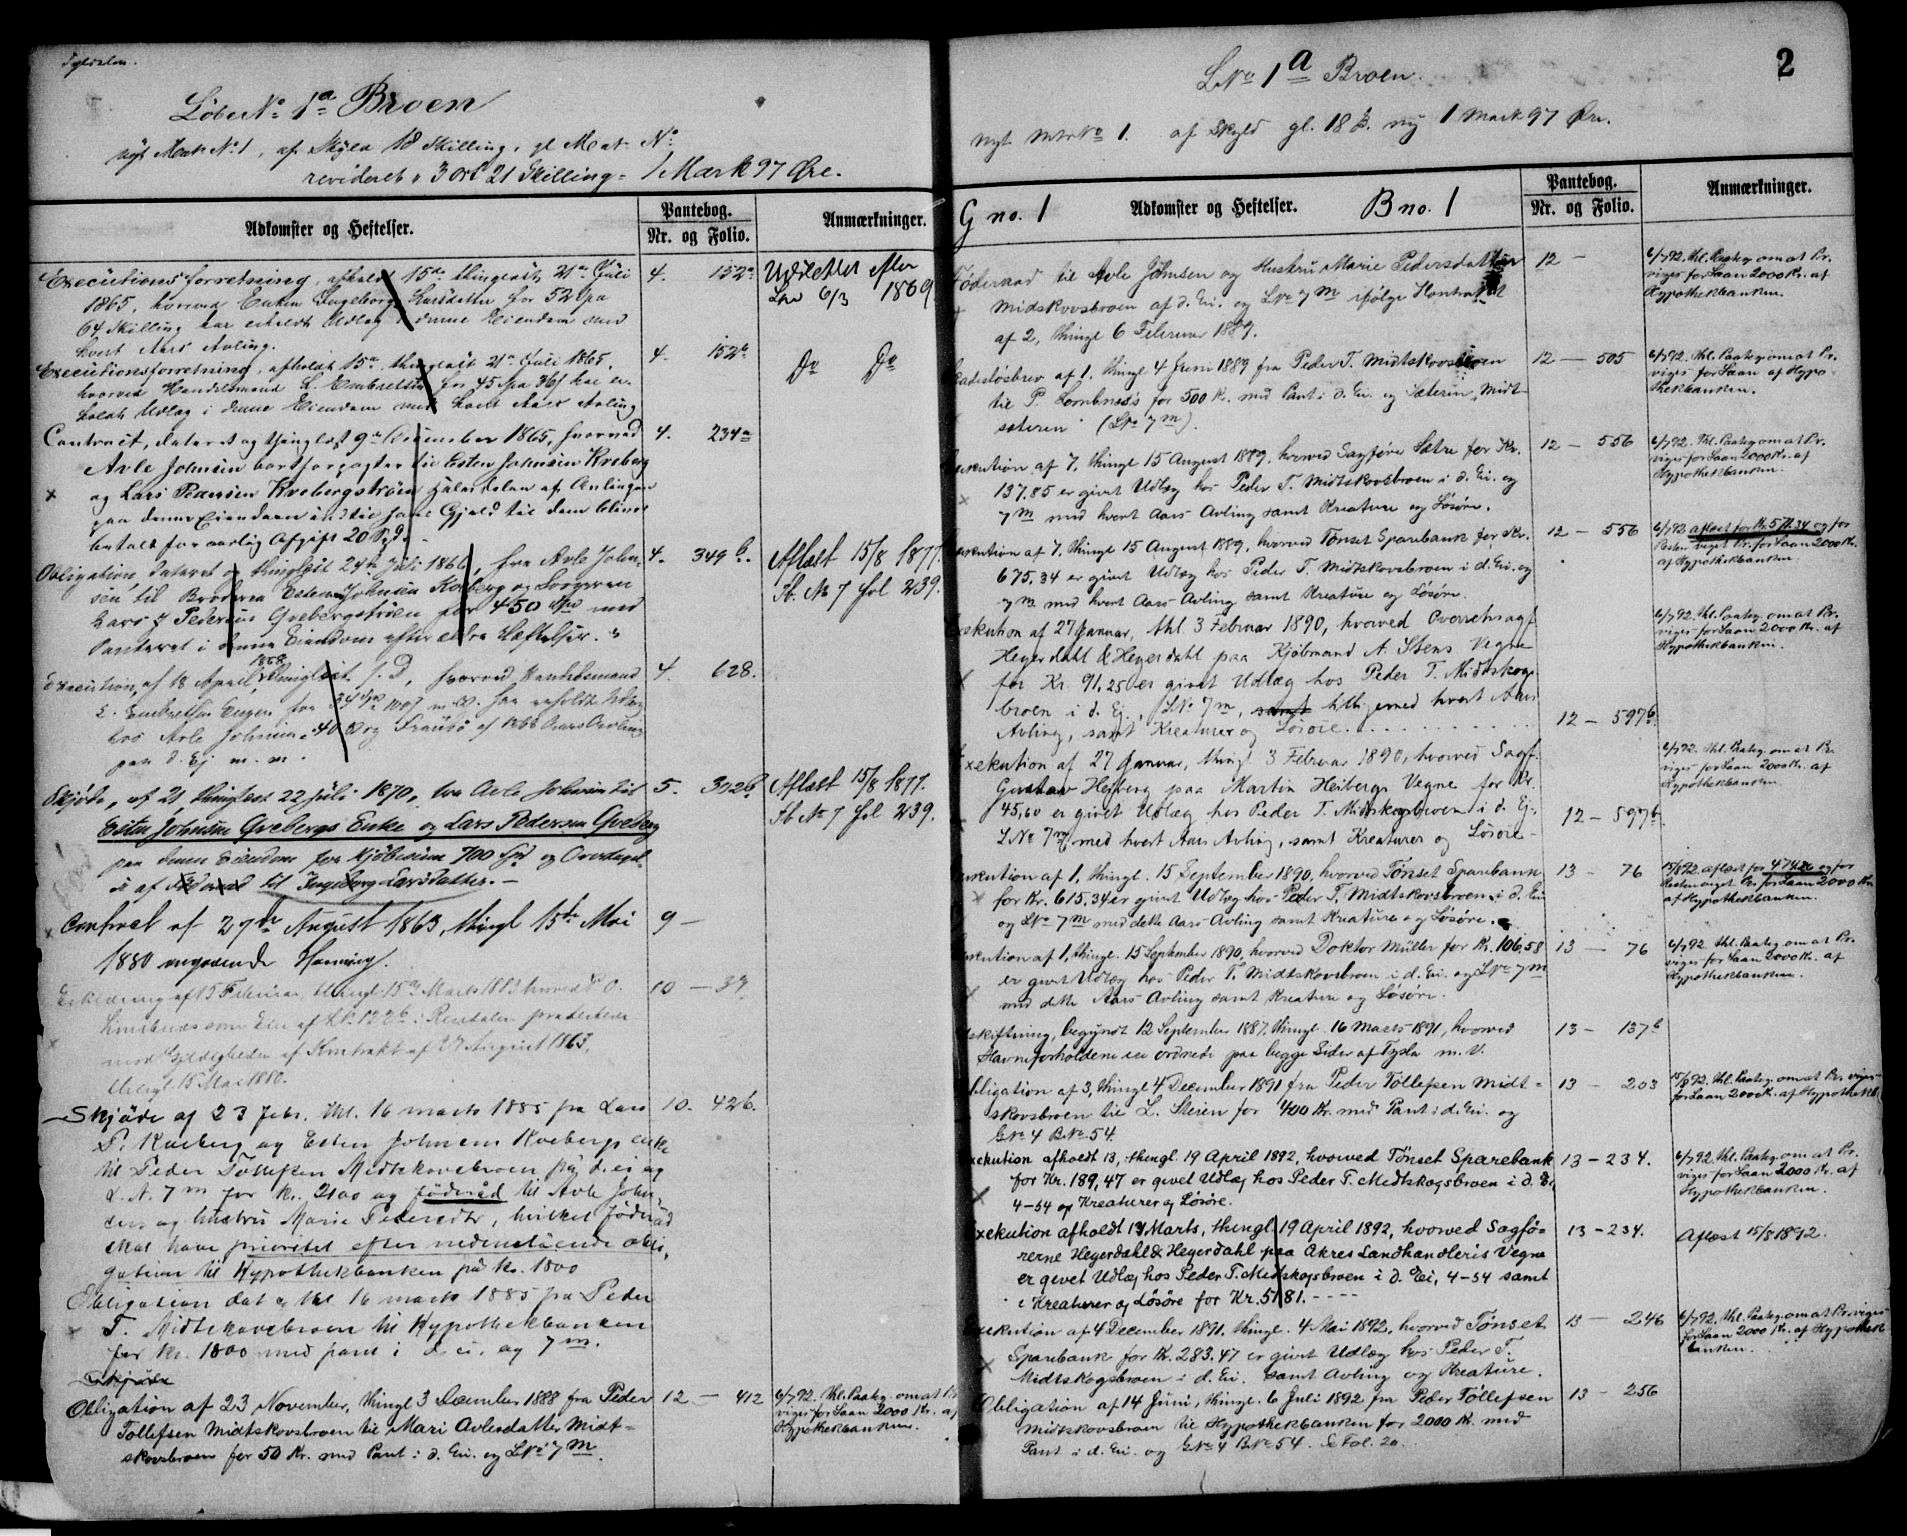 Tyldalen.
Løbe No 1a Broen
nyt Matr No 1, af Skyld 18 Skilling, gl Mat. No
revideret " 3 ort 21 Skilling = 1 Mark 97 Øre.
Adkomster og Heftelser.
Pantebog.
Nr. og Folio.
Anmærkninger.
Executionsforretning, afholdt 15de thinglæst 21de Juli 4. 152a Udslettet efter
1865, hvorved Enken Ingeborg Larsdatter for 52 Spd 6/3 1869
64 Skilling har erholdt Udlæg i denne Eiendom med
hvert Aars Avling.
Executionsforretning, afholdt 15de, thinglæst 21de Juli 1865, 4. 152b Do Do
hvorved Handelsmand E. Embretsen for 45 Spd 36 s har er-
holdt Udlæg i denne Eiendom med hvert Aars Avling
Contract, dateret og thinglæst 9de December 1865, hvorved 4. 234a
Avle Johnsen bortforpagter til Esten Johnsen Kveberg
og Lars Pedersen Kvebergstrøen Halvdelen af Avlingen
paa denne Eiendom indtil hans Gjæld til dem bliver
betalt for aarlig Afgift 20 Spd.
Obligation, dateret og thinglæst 24de Juli 1866, fra Avle John- 4. 349b. Aflæst 15/8 1877.
sen, til Brødrene Esten Johnsen Kveberg og Sb. No 7 fol 239.
Lars Pedersen Qvebergstrøen for 450 Spd med
Panteret i denne Eiendom efter ældre Hæftelser.
Execution, af 18 April 1868, thinglæst s. D, hvorved Handelsmand 4. 628.
E. Embretsen Engen for 34 Spd 100 s m. v. har erholdt Udlæg
hos Avle Johnsen i af 1868 Aars Avling
paa d. Ej. m. m.
Skjøte, af 21 thinglæst 22 Juli 1870, fra Avle Johnsen til 5. 302b Aflæst 15/8 1877.
Esten Johnsen Qvebergs Enke og Lars Pedersen Qveberg Sb No 7 fol 239.
paa denne Eiendom for Kjøbesum 700 Spd og Overtagel-
se af Føderaad til Ingeborg Larsdatter. —
Contract af 27de August 1863, thingl 15de Mai 9 —
1880 angaaende Havning.
Erklæring af 15 Februar, thingl. 15de Marts 1883 hvorved P. O. 10 — 37
som Eier af Lb. 122b i Rendalen protesterer
mod Gyldigheden af Kontrakt af 27 August 1863,
thingl. 15 Mai 1880.
Skjøde af 23 Febr. thl. 16 marts 1885 fra Lars 10. 426.
P. Kveberg og Esten Johnsens Kvebergs enke
til Peder Tollefsen Midtskovsbroen på d. ei og
L. N. 7m for kr. 2100 og föderåd til Avle John-
sen og hustru Marie Pedersdtr, hvilket föderåd
skal have prioritet efter nedenstående obli-
gation til Hypothekbanken på kr. 1800
Obligation dat og thl 16 marts 1885 fra Peder
T. Midtskovsbroen til Hypothekbanken
for kr. 1800 med pant i d. ei. og 7m.
Skjøde
Obligation af 23 November, thingl 3 December 1888 fra Peder 12 — 412 6/7 92. thl. Paateg. om at Pr.
Tollefsen Midtskovsbroen til Mari Avlesdatter Midt- viges for Laan 2000 Kr. af
skovsbroen for 50 Kr. med Pant i d. Ei. og LNo 7m. Hypothekbanken.
2
LNo 1a Broen.
nyt MtrNo 1. af Skyld gl. 18 ß. ny 1 Mark 97 Øre.
G no. 1 Adkomster og Heftelser. B no. 1
Pantebog.
Nr. og Folio.
Anmærkninger.
Føderaad til Avle Johnsen og Hustru Marie Pedersdatter 12 — 6/7 92. thl. Paateg om at Pr.
Midskovsbroen af d. Ei. og LNo 7m ifølge Kontrakt viges for Laan 2000 Kr. af
af 2, thingl 6 Februar 1889. Hypothekbanken.
Skadesløsbrev af 1. thingl 4 Juni 1889 fra Peder T. Midtskovsbroen 12 — 505 6/7 92. thl. Paateg om at Pr.
til P. Lombnæs's for 500 Kr. med Pant i d. Ei. og Sæteren "Midt- viges for Laan af Hypo-
sæteren" (LNo 7m). thekbanken.
Exekution af 7, thingl 15 August 1889, hvorved Sagfører Sætre for Kr. 12 — 556 6/7 92. thl. Paateg om at Pr.
137.85 er givet Udlæg hos Peder T. Midtskovsbroen i d. Ei. og viges for Laan 2000 Kr. af
7m med hvert Aars Avling samt Kreature og Løsøre. Hypothekbanken.
Exekution af 7, thingl 15 August 1889, hvorved Tønset Sparebank for Kr. 12 — 556 6/7 92 aflæst for Kr. 571.34 og for
675,34 er givet Udlæg hos Peder T. Midtskovsbroen i d. Ei. og Resten viget Pr. for Laan 2000 Kr.
7m med hvert Aars Avling samt Kreature og Løsøre. af Hypothekbanken.
Exekution af 27 Januar, thl 3 Februar 1890, hvorved Overretssagf. 6/7 92. thl. Paateg. om at Pr.
Heyerdahl & Heyerdahl paa Kjøbmand A. Stens Vegne viges for Laan 2000 Kr. af
for Kr. 91,25 er givet Udlæg hos Peder T. Midtskogs- Hypothekbanken.
broen i d. Ej., LNo 7m, samt tilligemed hvert Aars
Avling, samt Kreaturer og Løsøre. 12 — 597b.
Exekution af 27 Januar, thingl. 3 Februar 1890, hvorved Sagf. 6/7 92. thl. Paateg. om at Pr.
Gustav Heiberg paa Martin Heibergs Vegne for Kr. viges for Laan 2000 Kr. af
45,60 er givet Udlæg hos Peder T. Midtskogsbroen i d. Ej. Hypothekbanken
LNo 7m, med hvert Aars Avling, samt Kreaturer og Løsøre. 12 — 597b
Exekution af 1, thingl. 15 September 1890, hvorved Tønset Sparebank 13 — 76 15/8 92. aflæst for 474.26 og for
for Kr. 615.34 er givet Udlæg hos Peder T. Midtskovsbroen i d. Ei Resten viget Pr. for Laan 2000 Kr.
og LNo 7m med dette Aars Avling samt Kreature og Løsøre. af Hypothekbanken.
Exekution af 1, thingl. 15 September 1890, hvorved Doktor Müller for Kr. 106,58 13 — 76 6/7 92. thl. Paateg om at Pr.
er givet Udlæg hos Peder T. Midtskovsbroen i d. Ei. og LNo 7m viges for Laan 2000 Kr. af
med dette Aars Avling samt Kreature og Løsøre. Hypothekbanken.
Udskiftning, begyndt 12 September 1887. thingl. 16 Marts 1891, hvorved 13 — 137b
Havneforholdene ere ordnede paa begge Sider af Tysla m. V.
Obligation af 3, thingl 4 December 1891 fra Peder Tollefsen Midt- 13 — 203 15/8 92. thl. Paateg. om at Pr. viges
skovsbroen til L. Steien for 400 Kr. med Pant i d. Ei. og for Laan 2000 Kr. af Hypothekb.
GNo 4 BNo 54.
Exekution afholdt 13, thingl. 19 April 1892, hvorved Tønset Sparebank 13 — 234. 6/7 92. thl. Paateg. om at Pr.
for Kr. 189,47 er givet Udlæg hos Peder T. Midtskogsbroen i d. Ei viges for Laan 2000 Kr. af
4-54 og Kreaturer og Løsøre. Hypothekbanken.
Exekution afholdt 13 Marts, thingl 19 April 1892, hvorved Sagfø- 13 — 234. Aflæst 15/8 1892.
rerne Heyerdahl & Heyerdahl paa Akres Landhandleris Vegne
er givet Udlæg hos Peder T. Midtskogsbroen i d. Ei, 4-54 samt
i Kreaturer og Løsøre for Kr. 51.81. ----
Exekution af 4 December 1891. thingl. 4 Mai 1892, hvorved Tønset 13 — 246 6/7 92. thl. Paateg. om at Pr. viges
Sparebank for Kr. 283.47 er givet Udlæg hos Peder T. for Laan 2000 Kr. af Hypothek-
Midtskogsbroen i d. Ei. samt Avling og Kreature. banken.
Obligation af 14 Juni, thingl. 6 Juli 1892 fra Peder Tollefsen 13 — 256
Midtskovsbroen til Hypothekbanken for 2000 Kr. med
Pant i d. Ei. og GNo 4 BNo 54. Se Fol. 20.